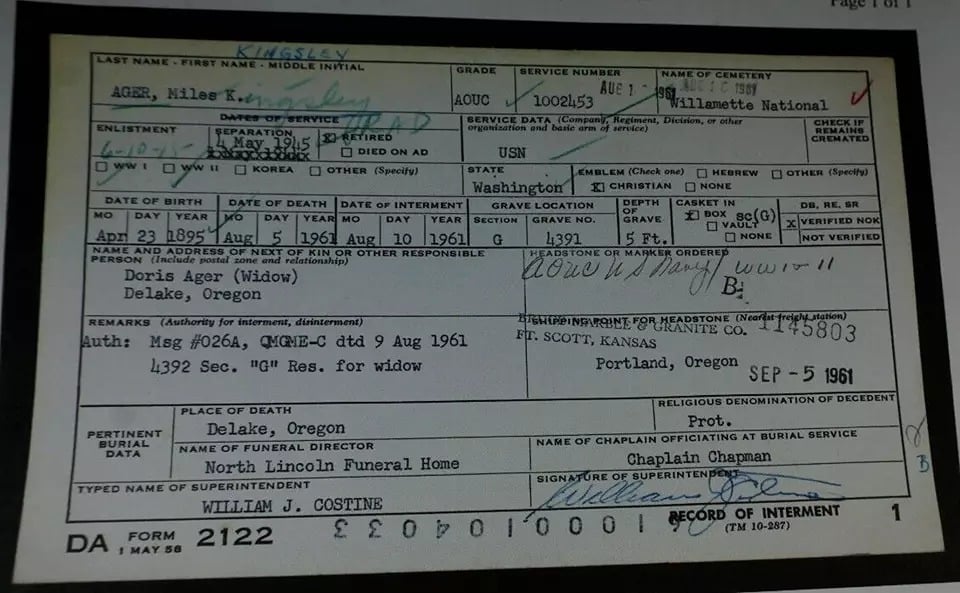 Page 1 of 1
KINGSLEY
LAST NAME - FIRST NAME - MIDDLE INITIAL
AGER, Miles K. ingsley
GRADE
AOUC
SERVICE NUMBER
1002453
AUG 1
1961
NAME OF CEMETERY
Willamette National
DATES OF SERVICE
ENLISTMENT
6-10-15
SEPARATION
4 May 1945
xxxxxxxxxx
X RETIRED
DIED ON AD
SERVICE DATA (Company, Regiment, Division, or other
organization and basic arm of service)
USN
CHECK IF
REMAINS
CREMATED
WW I WW II KOREA OTHER (Specify)
STATE
Washington
EMBLEM (Check one) HEBREW OTHER (Specify)
X CHRISTIAN NONE
DATE OF BIRTH
MO DAY YEAR
Apr 23 1895
DATE OF DEATH
MO DAY YEAR
Aug 5 1961
DATE OF INTERMENT
MO DAY YEAR
Aug 10 1961
GRAVE LOCATION
SECTION GRAVE NO.
G 4391
DEPTH
OF
GRAVE
5 Ft.
CASKET IN
X BOX SC(G)
VAULT
NONE
DB, RE, SR
X VERIFIED NOK
NOT VERIFIED
NAME AND ADDRESS OF NEXT OF KIN OR OTHER RESPONSIBLE
PERSON (Include postal zone and relationship)
Doris Ager (Widow)
Delake, Oregon
HEADSTONE OR MARKER ORDERED
AOUC US Navy WW I & II
B
REMARKS (Authority for interment, disinterment)
Auth: Msg #026A, QMGME-C dtd 9 Aug 1961
4392 Sec. "G" Res. for widow
SHIPPING POINT FOR HEADSTONE (Nearest freight station)
& GRANITE CO. 1145803
FT. SCOTT, KANSAS
Portland, Oregon
SEP - 5 1961
PERTINENT
BURIAL
DATA
PLACE OF DEATH
Delake, Oregon
RELIGIOUS DENOMINATION OF DECEDENT
Prot.
NAME OF FUNERAL DIRECTOR
North Lincoln Funeral Home
NAME OF CHAPLAIN OFFICIATING AT BURIAL SERVICE
Chaplain Chapman
B
TYPED NAME OF SUPERINTENDENT
WILLIAM J. COSTINE
SIGNATURE OF SUPERINTENDENT
William J Costine
DA FORM 2122
1 MAY 58
RECORD OF INTERMENT
(TM 10-287)
1